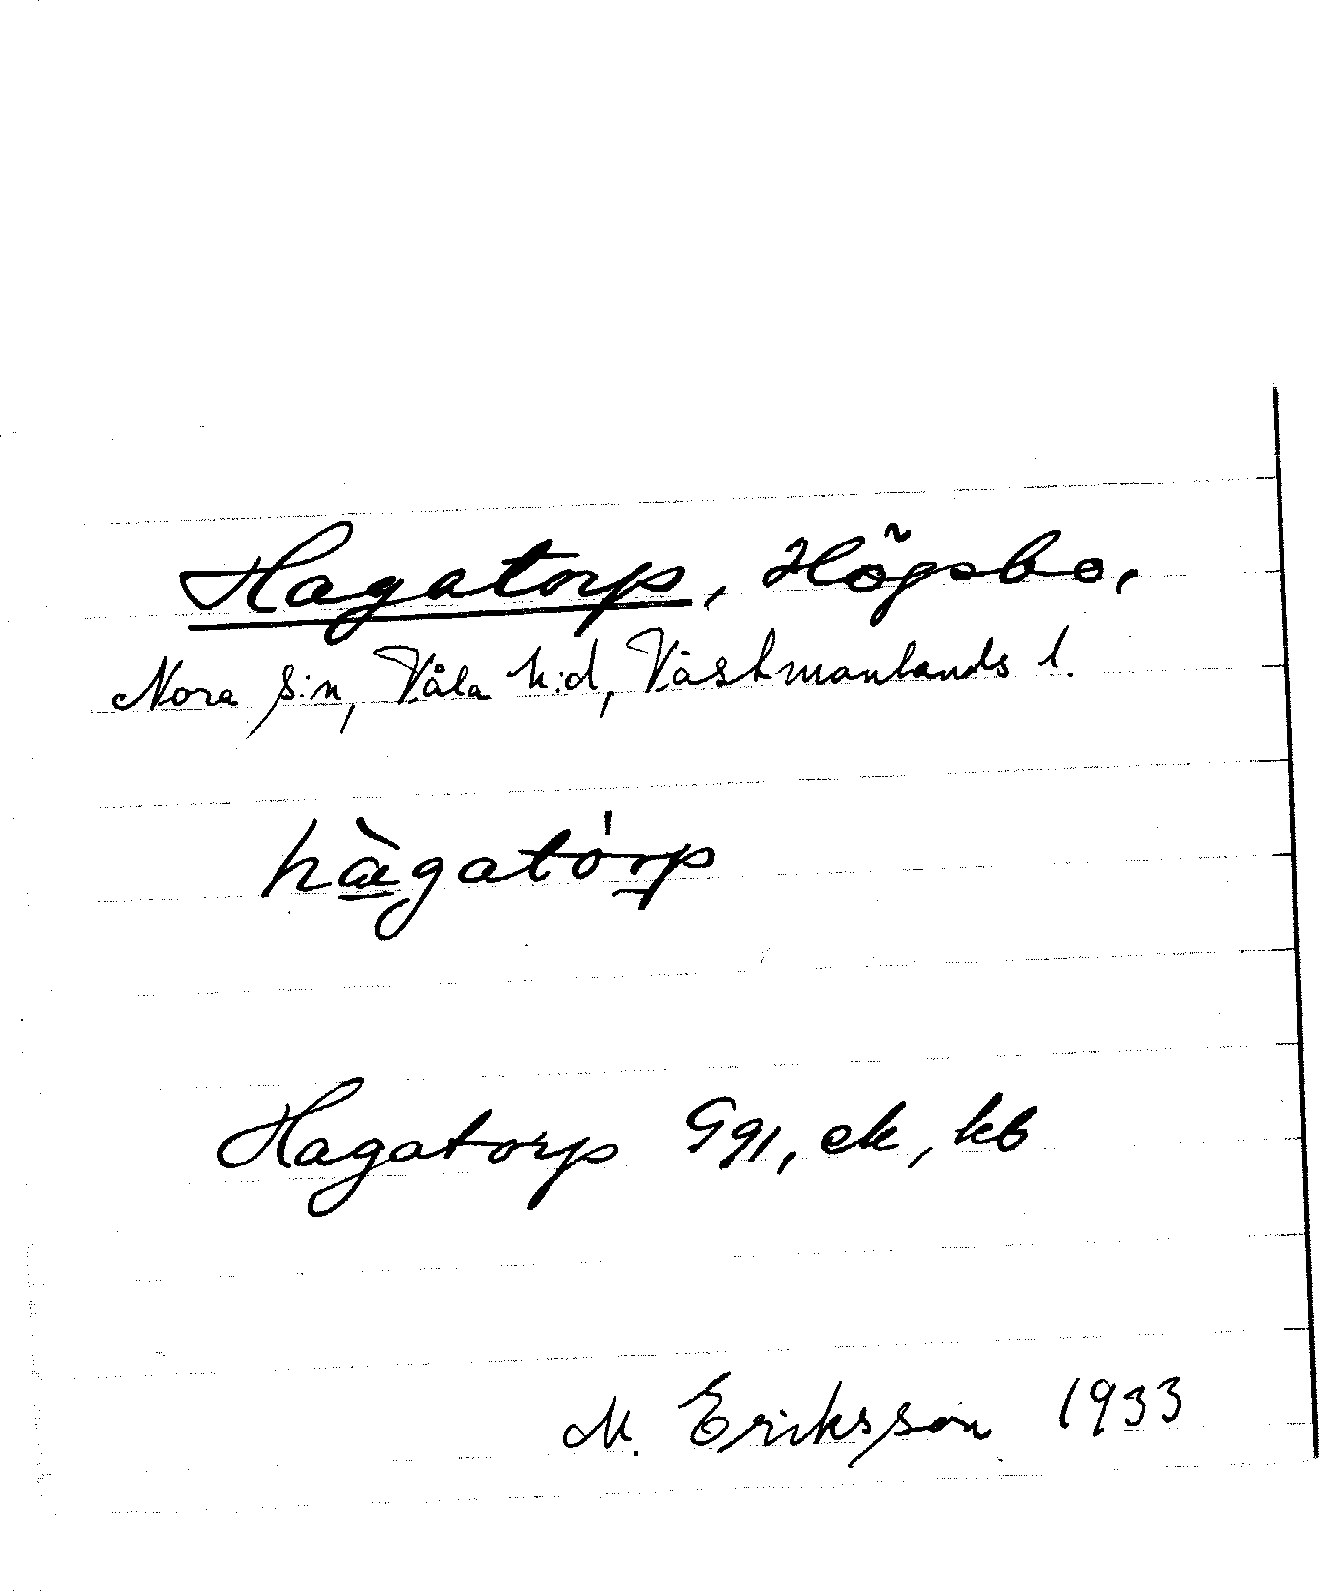 Hagatorp, Högsbo,
Nora s:n, Våla h:d, Västmanlands l.
hàgatórp
Hagatorp Gg1, ek, kb
M. Eriksson 1933